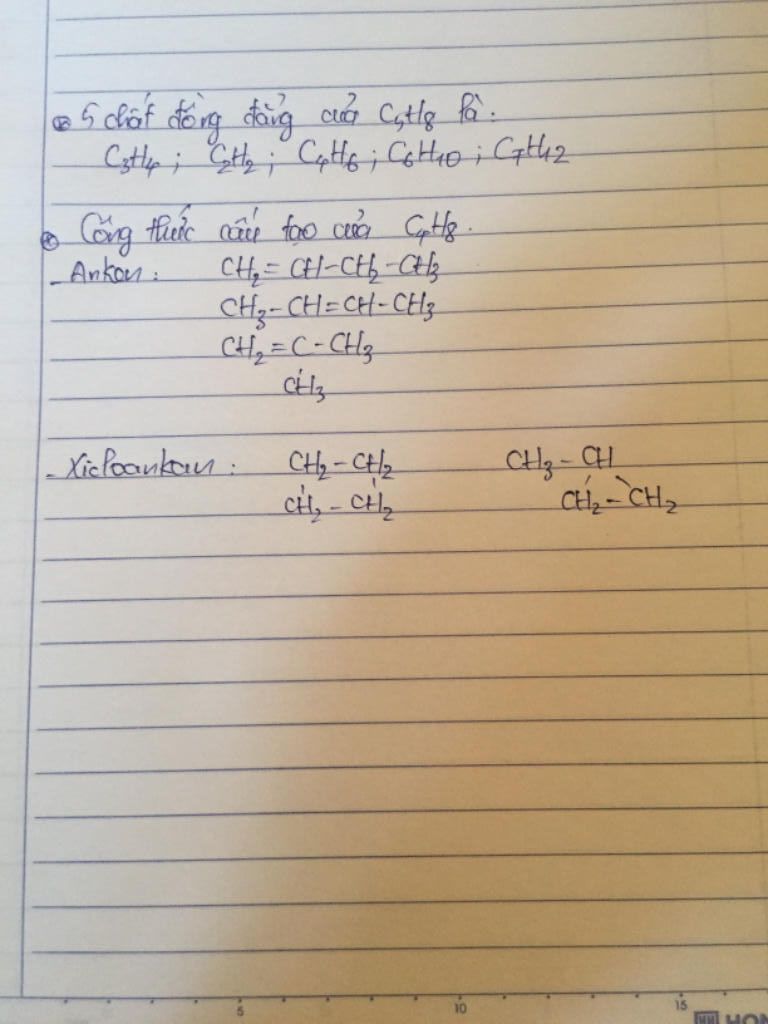 ⊛ 5 chất đồng đẳng của C5H8 là:
C3H4 ; C2H2 ; C4H6 ; C6H10 ; C7H12
⊛ Công thức cấu tạo của C4H8.
- Anken : CH2 = CH - CH2 - CH3
CH3 - CH = CH - CH3
CH2 = C - CH3
CH3
- Xicloankan : CH2 - CH2 CH3 - CH
CH2 - CH2 CH2 - CH2
5 10 15